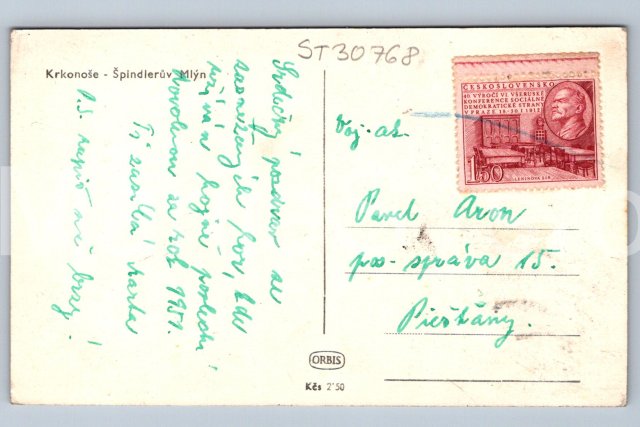 ST30768
Krkonoše - Špindlerův Mlýn
Srdečný pozdrav ze
zasněžených hor, kde
užívá hojně poslední
dovolenou za rok 1951.
Ti zasílá Marta
P.S. napiš mi brzy!
ČESKOSLOVENSKO
40. VÝROČÍ VI. VŠERUSKÉ
KONFERENCE SOCIÁLNĚ
DEMOKRATICKÉ STRANY
V PRAZE 18.-30.I.1912
1.50
LENINOVA SÍŇ
Voj. ak.
Pavel Aron
pos- správa 15.
Piešťany.
ORBIS
Kčs 2'50